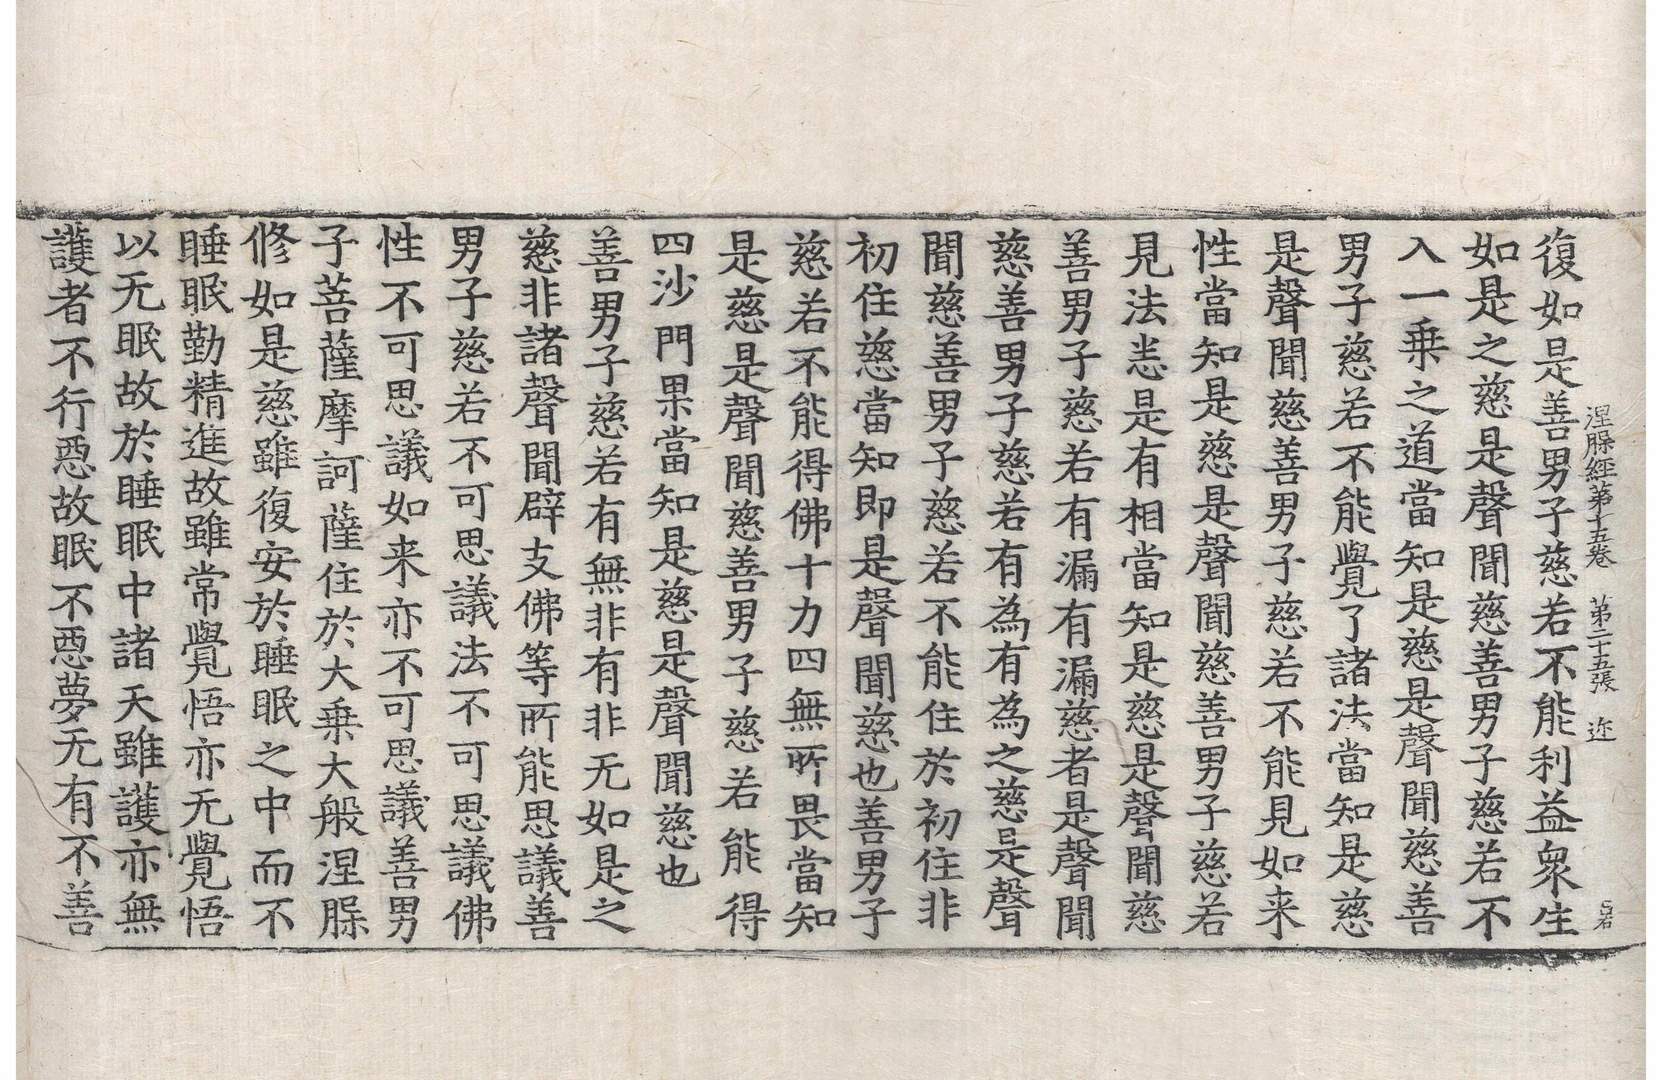 涅槃經第十五卷　第二十五張　迩
復如是善男子慈若不能利益衆生
如是之慈是聲聞慈善男子慈若不
入一乗之道當知是慈是聲聞慈善
男子慈若不能覺了諸法當知是慈
是聲聞慈善男子慈若不能見如来
性當知是慈是聲聞慈善男子慈若
見法悉是有相當知是慈是聲聞慈
善男子慈若有漏有漏慈者是聲聞
慈善男子慈若有為有為之慈是聲
聞慈善男子慈若不能住於初住非
初住慈當知即是聲聞慈也善男子
慈若不能得佛十力四無所畏當知
是慈是聲聞慈善男子慈若能得
四沙門果當知是慈是聲聞慈也
善男子慈若有無非有非无如是之
慈非諸聲聞辟支佛等所能思議善
男子慈若不可思議法不可思議佛
性不可思議如来亦不可思議善男
子菩薩摩訶薩住於大乗大般涅槃
修如是慈雖復安於睡眠之中而不
睡眠勤精進故雖常覺悟亦无覺悟
以无眠故於睡眠中諸天雖護亦無
護者不行惡故眠不惡夢无有不善